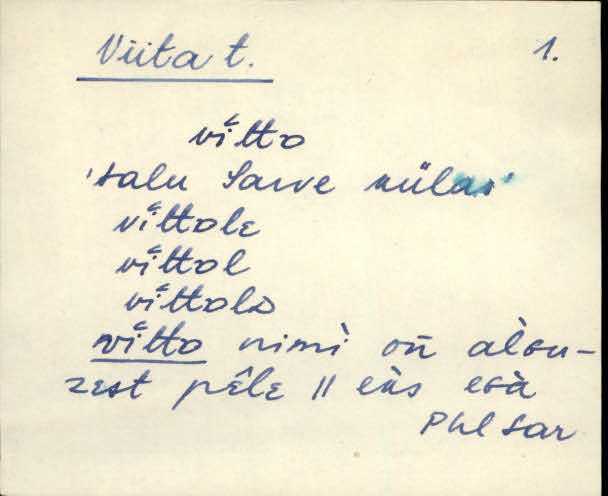 Viita t. 1.
vĭ͔tto
'talu Sarve külas'
vĭ͔ttole
vĭ͔ttol
vĭ͔ttolo
vĭ͔tto nimì oñ
zest pêle || eùs esà
Phl Sar